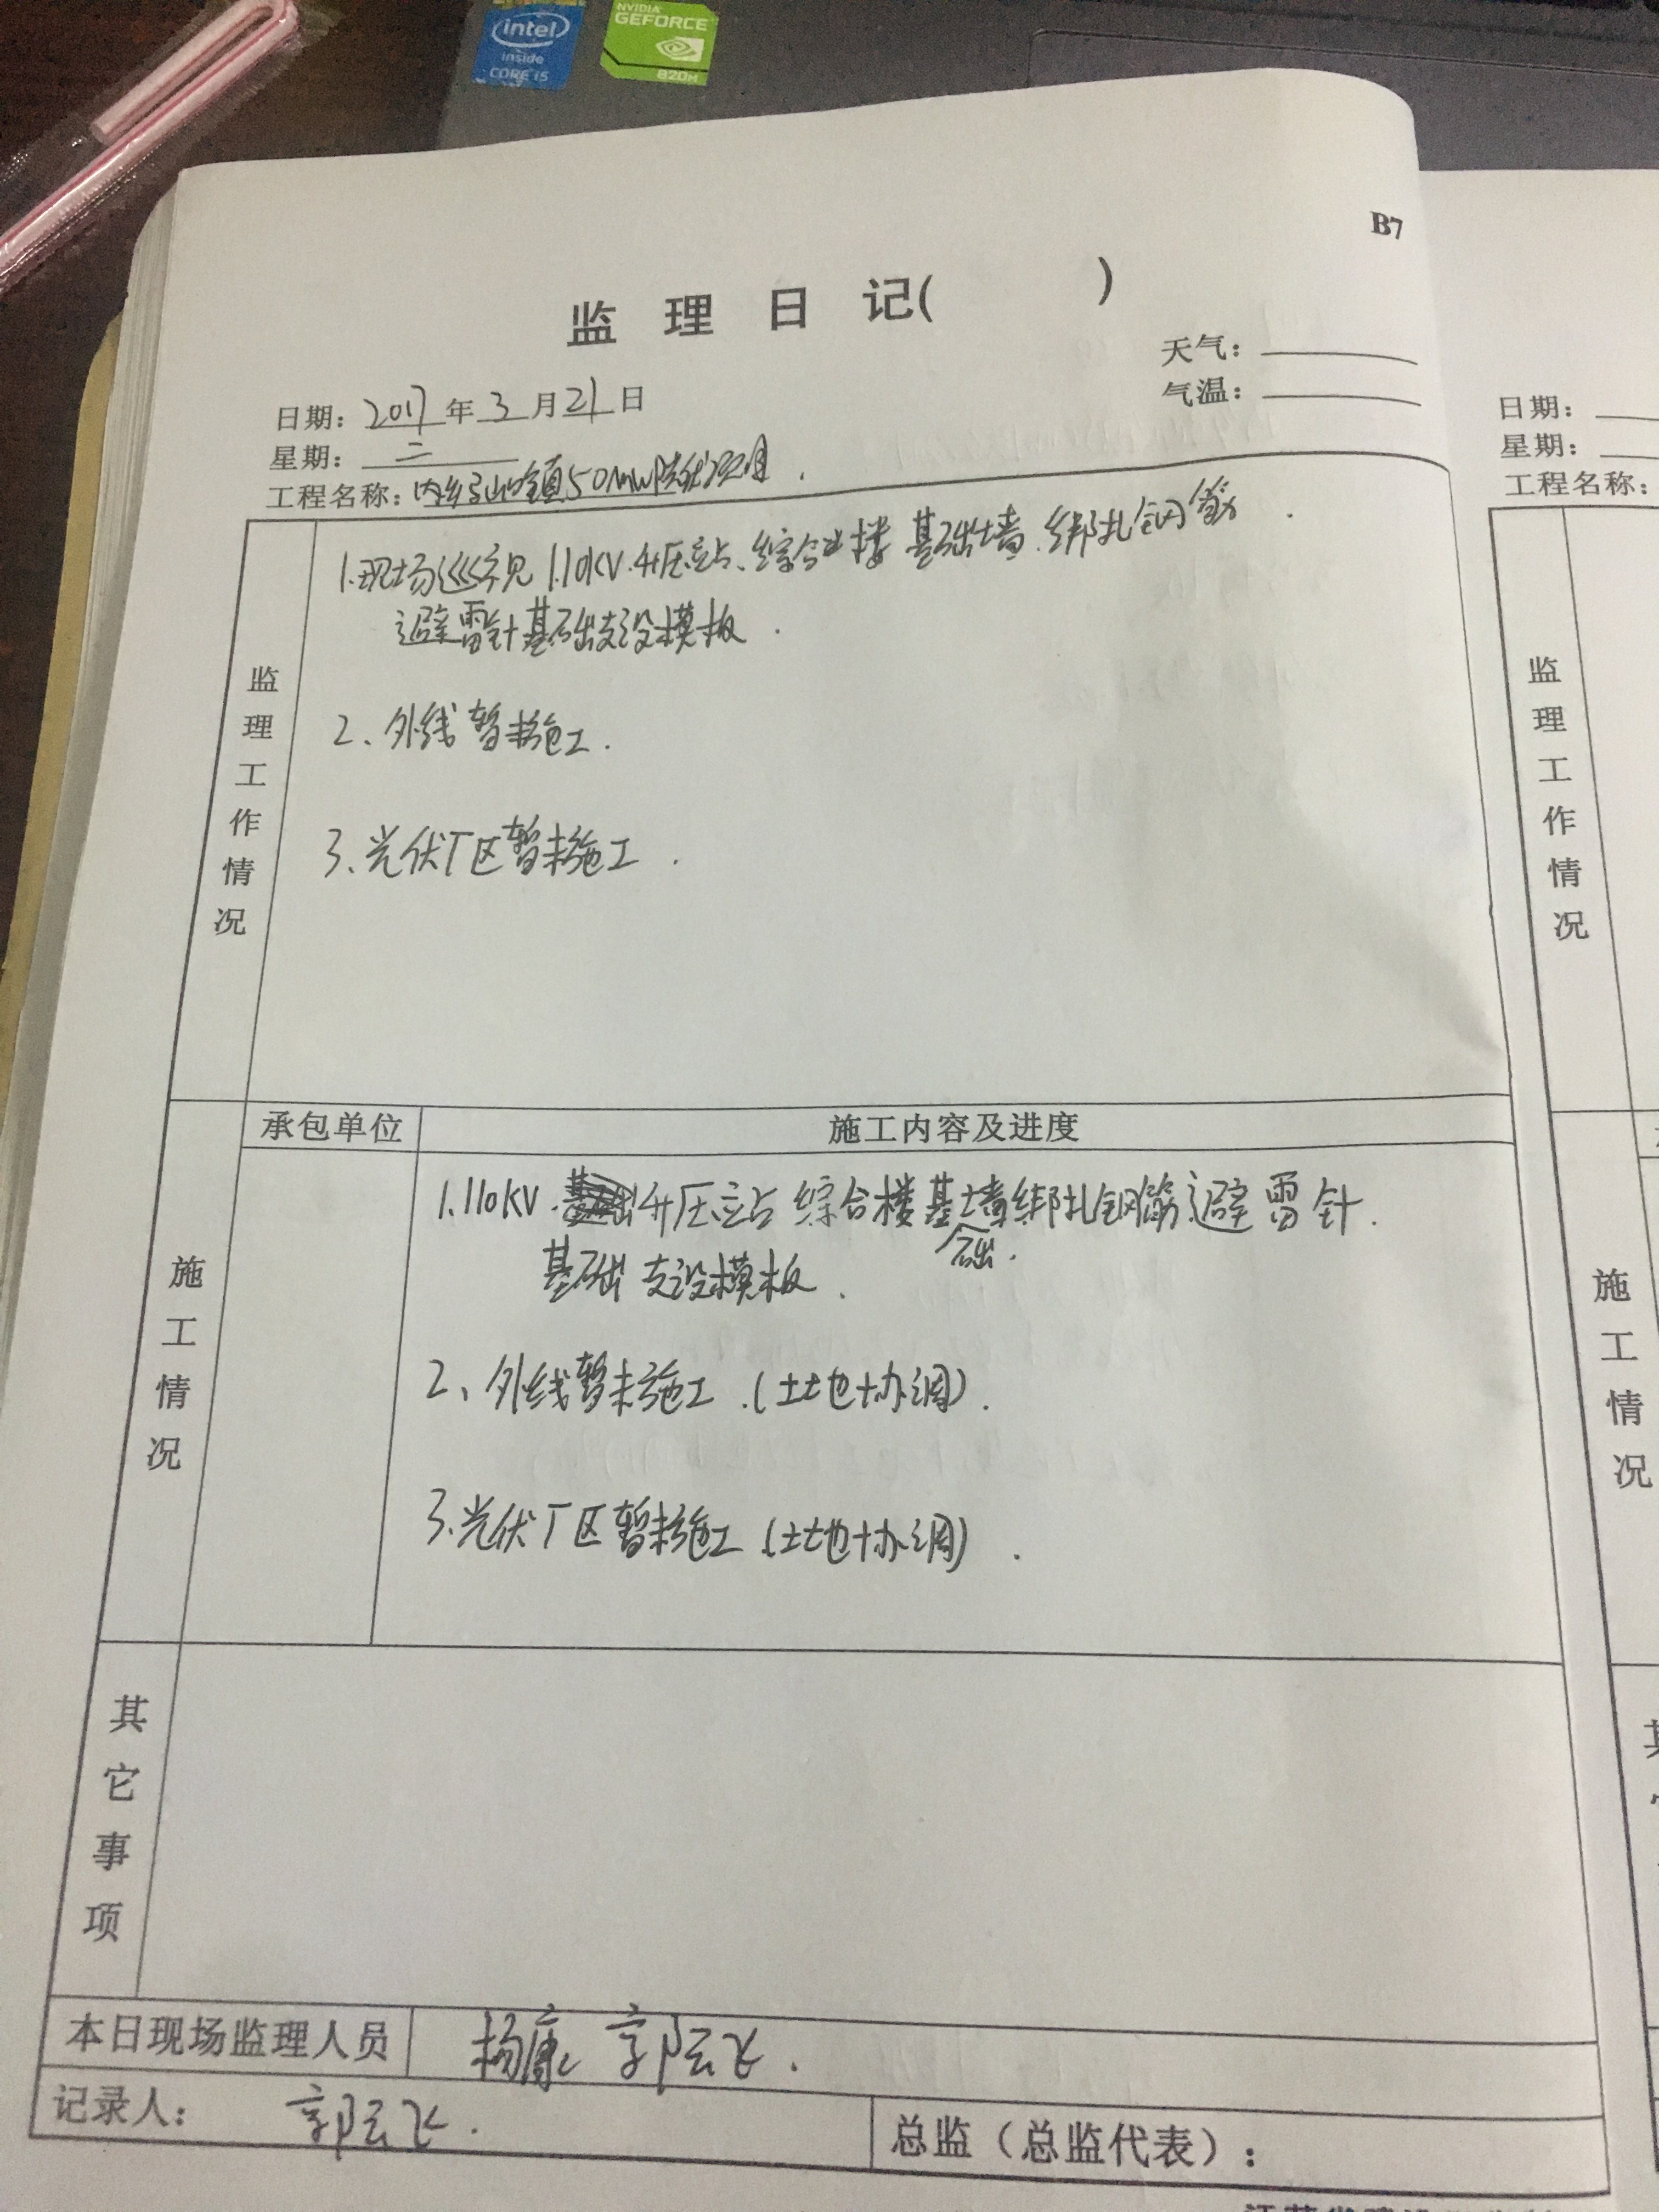 intel
inside
CORE i5
NVIDIA
GEFORCE
820M
B7
监 理 日 记( )
天气:
气温:
日期: 2017 年 3 月 21 日
星期: 二
工程名称: 内乡 镇50MW光伏项目.
监理工作情况
1.现场巡视110KV.升压站.综合楼 基础墙.绑扎钢筋.
避雷针基础支设模板.
2、外线暂未施工.
3、光伏厂区暂未施工.
承包单位 施工内容及进度
施工情况
1.110KV.升压站 综合楼基础墙绑扎钢筋避雷针.
基础 支设模板.
2、外线暂未施工.(土地协调).
3.光伏厂区暂未施工(土地协调).
其它事项
本日现场监理人员 杨康 郭云飞.
记录人: 郭云飞.
总监(总监代表):
日期:
星期:
工程名称:
监理工作情况
施工情况